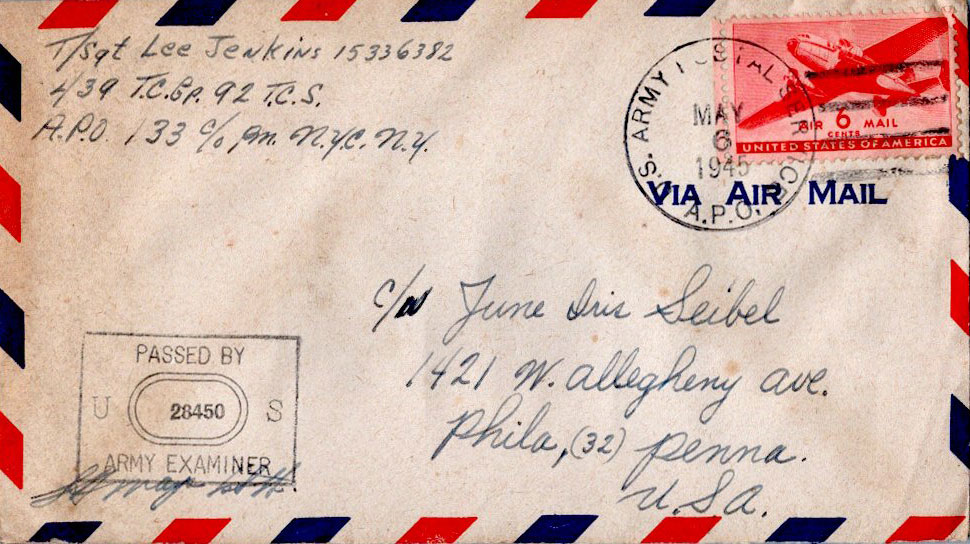 T/Sgt Lee Jenkins 15336382
439 T.C.Gp. 92 T.C.S.
A.P.O. 133 c/o Pm. N.Y.C. N.Y.
U.S. ARMY POSTAL SERVICE
MAY
6
1945
A.P.O.
AIR 6 MAIL
CENTS
UNITED STATES OF AMERICA
VIA AIR MAIL
June Iris Seibel
1421 W. Allegheny Ave.
Phila, (32) Penna.
U.S.A.
PASSED BY
U 28450 S
ARMY EXAMINER